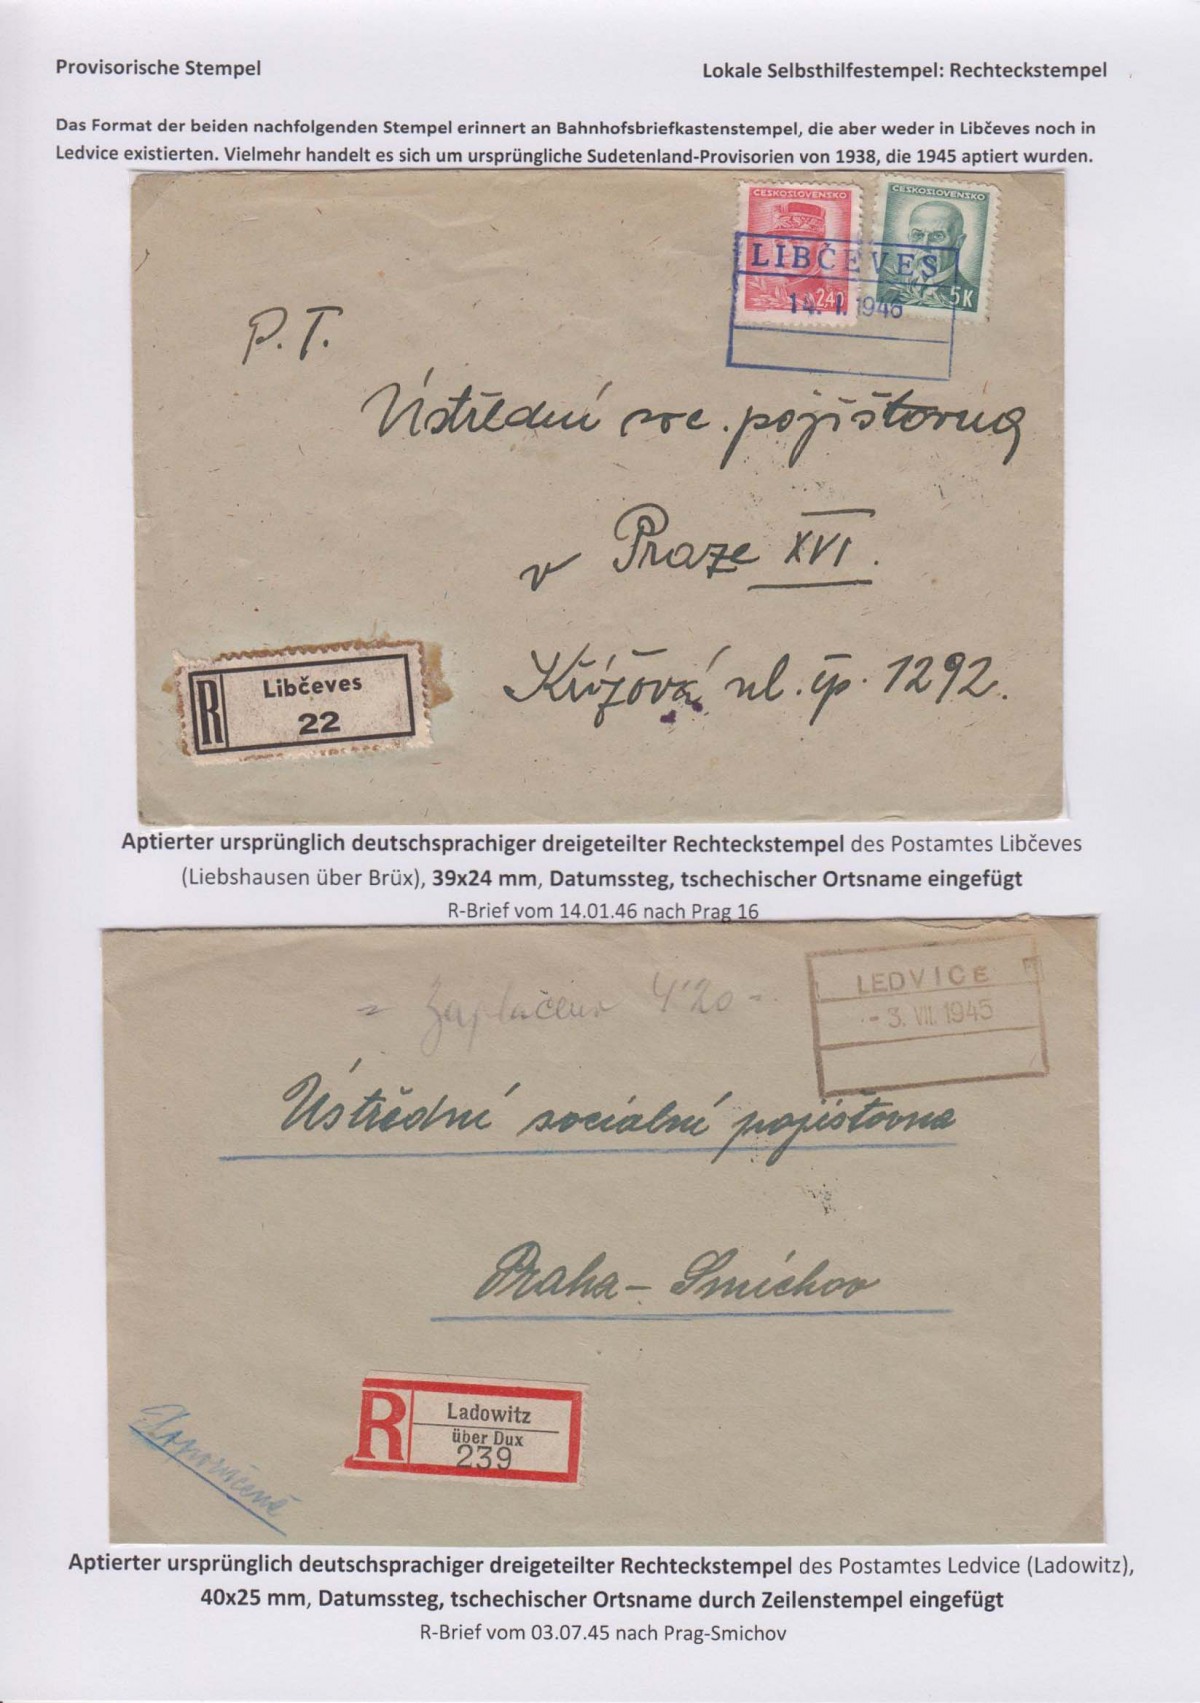 Provisorische Stempel
Lokale Selbsthilfestempel: Rechteckstempel
Das Format der beiden nachfolgenden Stempel erinnert an Bahnhofsbriefkastenstempel, die aber weder in Libčeves noch in
Ledvice existierten. Vielmehr handelt es sich um ursprüngliche Sudetenland-Provisorien von 1938, die 1945 aptiert wurden.
ČESKOSLOVENSKO
ČESKOSLOVENSKO
LIBČEVES
2,40
5K
14. 1. 1946
P. T.
Ústřední soc. pojišťovna
v Praze XVI.
R
Libčeves
22
Křížová ul. čp. 1292.
Aptierter ursprünglich deutschsprachiger dreigeteilter Rechteckstempel des Postamtes Libčeves
(Liebshausen über Brüx), 39x24 mm, Datumssteg, tschechischer Ortsname eingefügt
R-Brief vom 14.01.46 nach Prag 16
= Zaplaceno 4'20 =
LEDVICE
- 3. VII. 1945
Ústřední sociální pojišťovna
Praha - Smíchov
R
Ladowitz
über Dux
239
Doporučeně
Aptierter ursprünglich deutschsprachiger dreigeteilter Rechteckstempel des Postamtes Ledvice (Ladowitz),
40x25 mm, Datumssteg, tschechischer Ortsname durch Zeilenstempel eingefügt
R-Brief vom 03.07.45 nach Prag-Smichov